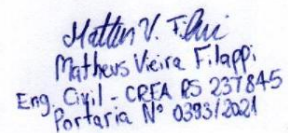 Matheus V. Filappi
Matheus Vieira Filappi
Eng. Civil - CREA RS 237845
Portaria Nº 0393/2021